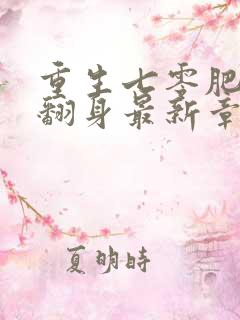 重生七零肥
翻身最新章
夏明時